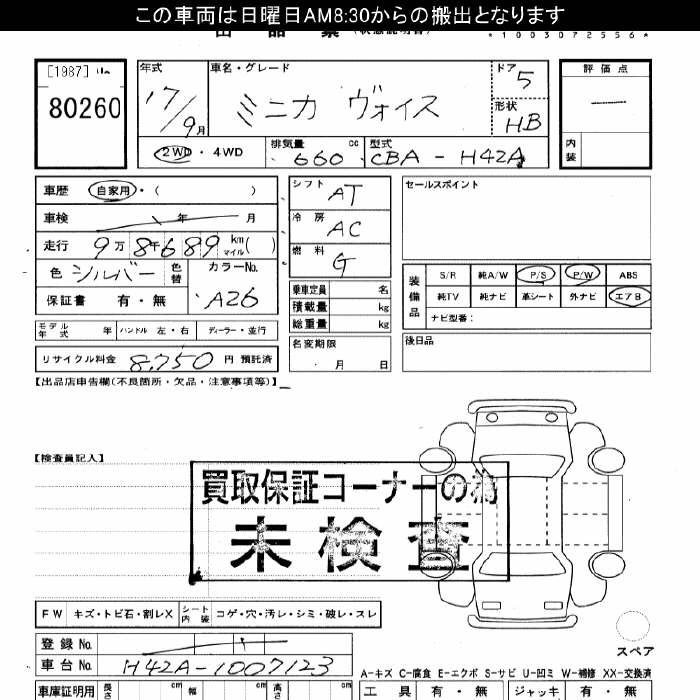 この車両は日曜日AM8:30からの搬出となります
*1003072556*
[1987]
80260
年式 車名・グレード ドア 5 評価点
17/9月 ミニカ ヴォイス 形状 HB
2WD・4WD 排気量 660 cc 型式 CBA-H42A 内装
車歴 自家用・( ) シフト AT セールスポイント
車検 年 月 冷房 AC
走行 9万8千689 km マイル ( ) 燃料 G
色 シルバー 色替 カラーNo. A26
保証書 有・無
乗車定員 名
積載量 kg
総重量 kg
装備品 S/R 純A/W P/S P/W ABS
純TV 純ナビ 革シート 外ナビ エアB
ナビ型番:
モデル年式 年 ハンドル 左・右 ディーラー・並行
名変期限 月 日
後日品
リサイクル料金 8,750 円 預託済
【出品店申告欄(不良箇所・欠品・注意事項等)】
【検査員記入】
買取保証コーナーの為
未検査
FW キズ・トビ石・割レX シート内装 コゲ・穴・汚レ・シミ・破レ・スレ
スペア
登録No.
車台No. H42A-1007123
A-キズ C-腐食 E-エクボ S-サビ U-凹ミ W-補修 XX-交換済
車庫証明用 長さ cm 幅 cm 高さ cm 工具 有・無 ジャッキ 有・無